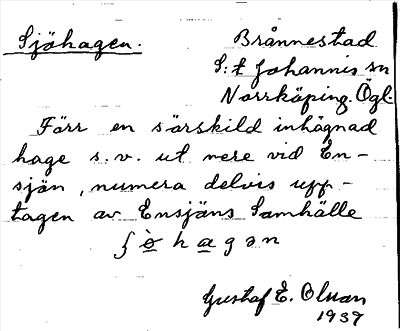 Sjöhagen.
Brånnestad
S:t Johannis sn
Norrköping. Ögl.
Förr en särskild inhägnad
hage s.v. ut nere vid En-
sjön, numera delvis upp-
tagen av Ensjöns Samhälle
ʃ ö̀ h a g ə n
Gustaf E. Olsson
1937